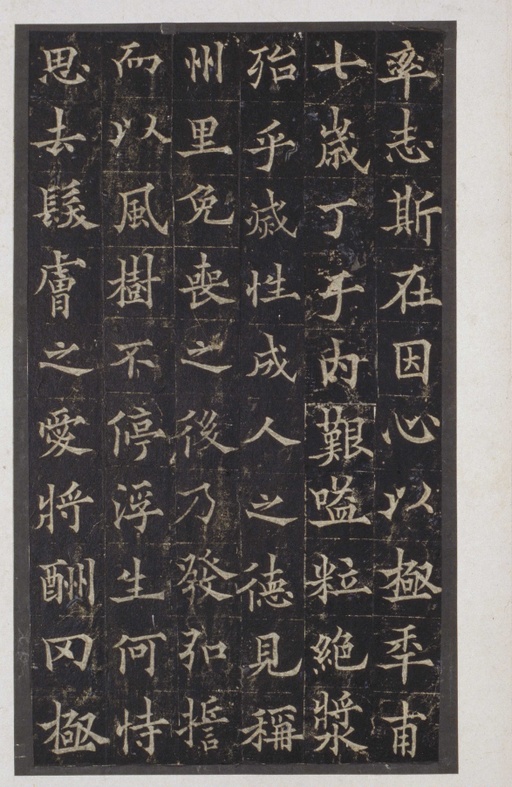 率志斯在因心以極年甫
七歲丁于內艱嗌粒絕漿
殆乎滅性成人之德見稱
州里免喪之後乃發弘誓
而以風樹不停浮生何恃
思去髮膚之愛將酬罔極